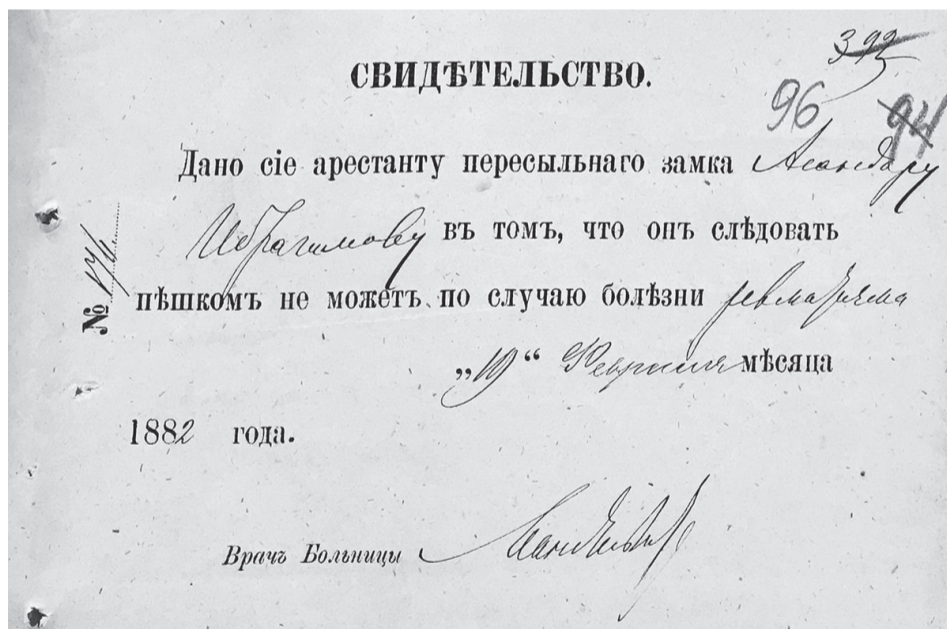 395
96
94
СВИДѢТЕЛЬСТВО.
Дано сіе арестанту пересыльнаго замка Асандару
Ибрагимову въ томъ, что онъ слѣдовать
пѣшкомъ не можетъ по случаю болѣзни ревматизма
„19“ Февраля мѣсяца
1882 года.
Врачъ Больницы
№